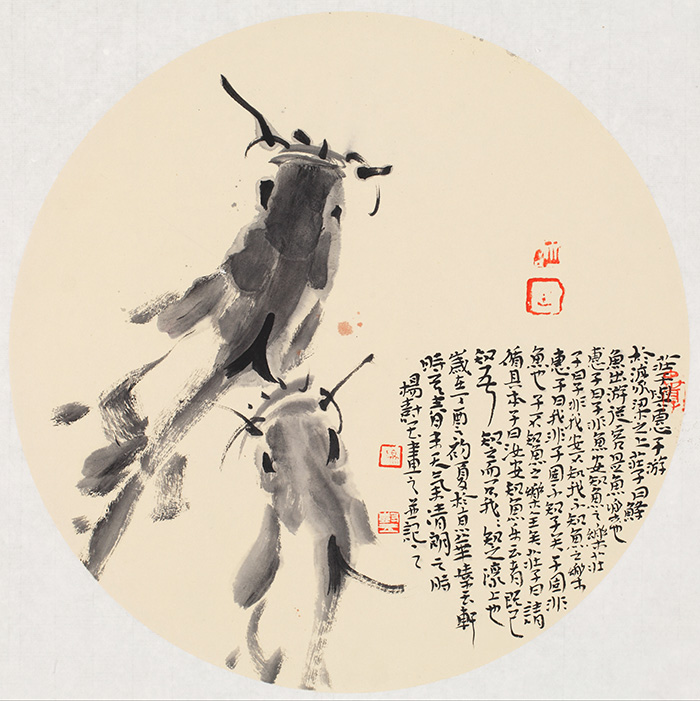 莊子與惠子游
於濠梁之上莊子曰鯈
魚出游從容是魚樂也
惠子曰子非魚安知魚之樂莊
子曰子非我安知我不知魚之樂
惠子曰我非子固不知子矣子固非
魚也子不知魚之樂全矣莊子曰請
循其本子曰汝安知魚樂云者既已
知吾知之而问我々知之濠上也
歲在丁酉初夏於京華云軒
時天氣清朗之時
楊計畫之並記之